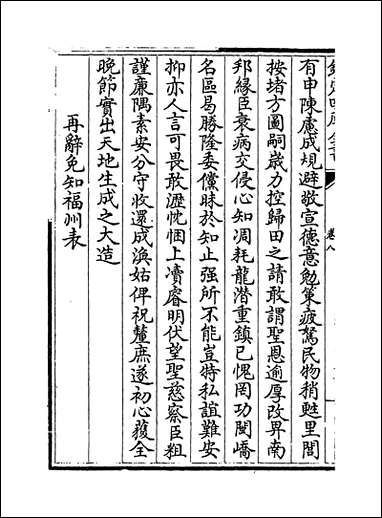 有申陳慮成規避敬宣德意勉策疲駑民物稍甦里閭
按堵方圖嗣歲力控歸田之請敢謂聖恩逾厚改畀南
邦緣臣衰病交侵心知凋耗龍潜重鎮已愧罔功閩嶠
名區曷勝隆委儻昧於知止强所不能豈特私誼難安
抑亦人言可畏敢瀝忱悃上凟睿明伏望聖慈察臣粗
謹廉隅素安分守收還成渙姑俾祝釐庶遂初心䕶全
晚節實出天地生成之大造
再辭免知福州表
卷八